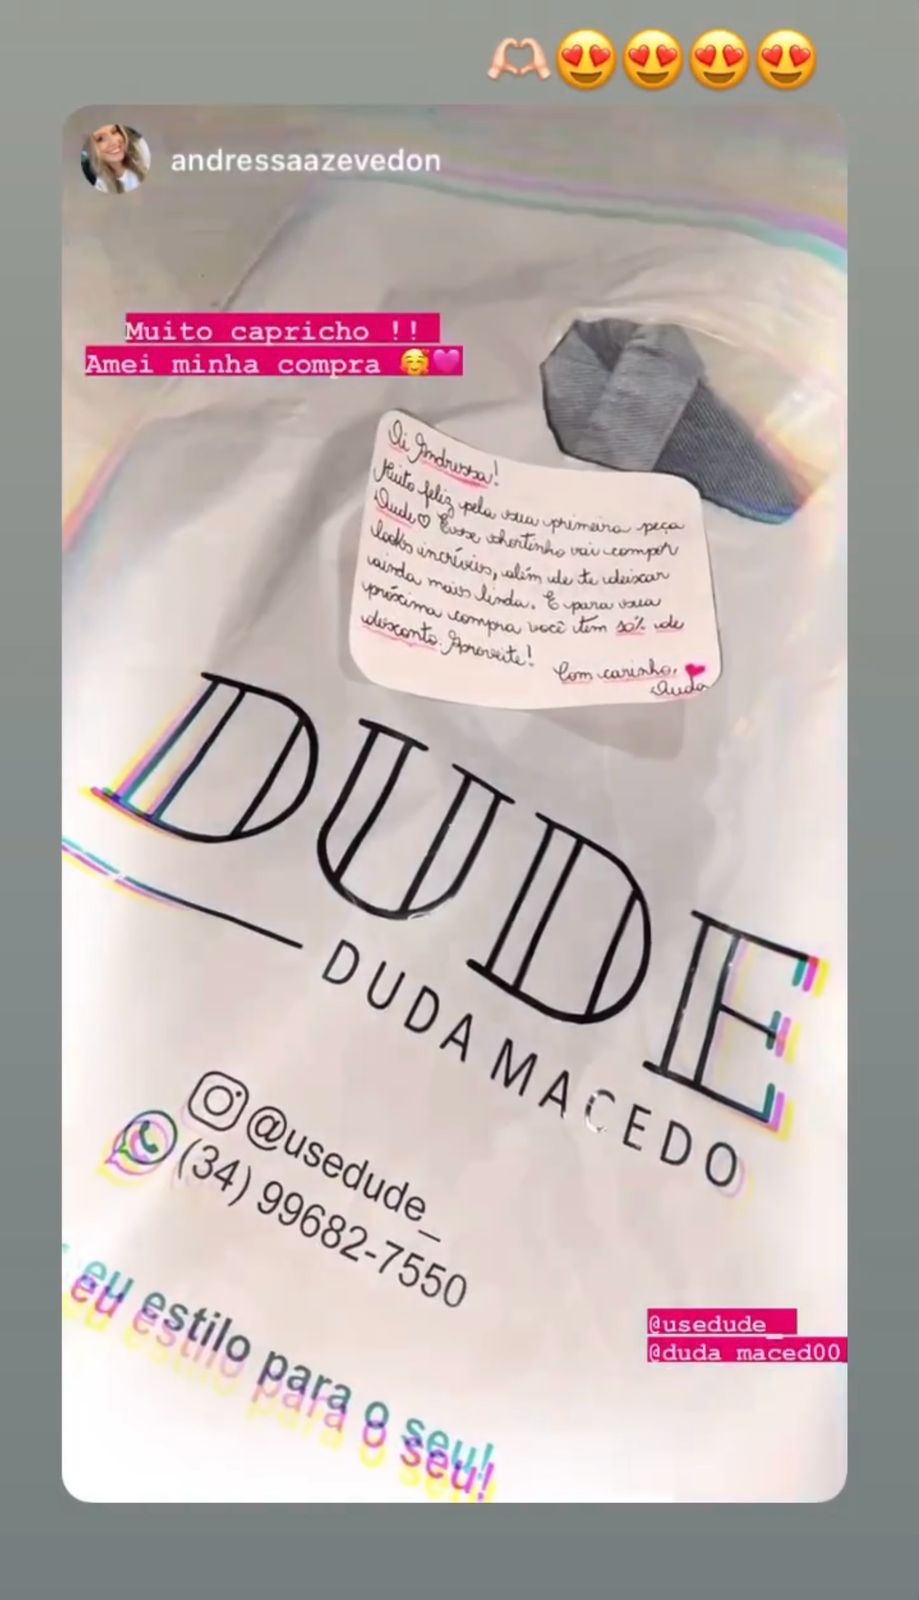 🫶🏻😍😍😍😍
andressaazevedon
Muito capricho !!
Amei minha compra 🥰💜
Oi Andressa!
Muito feliz pela sua primeira peça
Dude♡ Esse shortinho vai compor
looks incríveis, além de te deixar
ainda mais linda. E para sua
próxima compra você tem 10% de
desconto. Aproveite!
Com carinho,
Duda
DUDE
DUDA MACEDO
@usedude_
(34) 99682-7550
eu estilo para o seu!
@usedude_
@duda_maced00